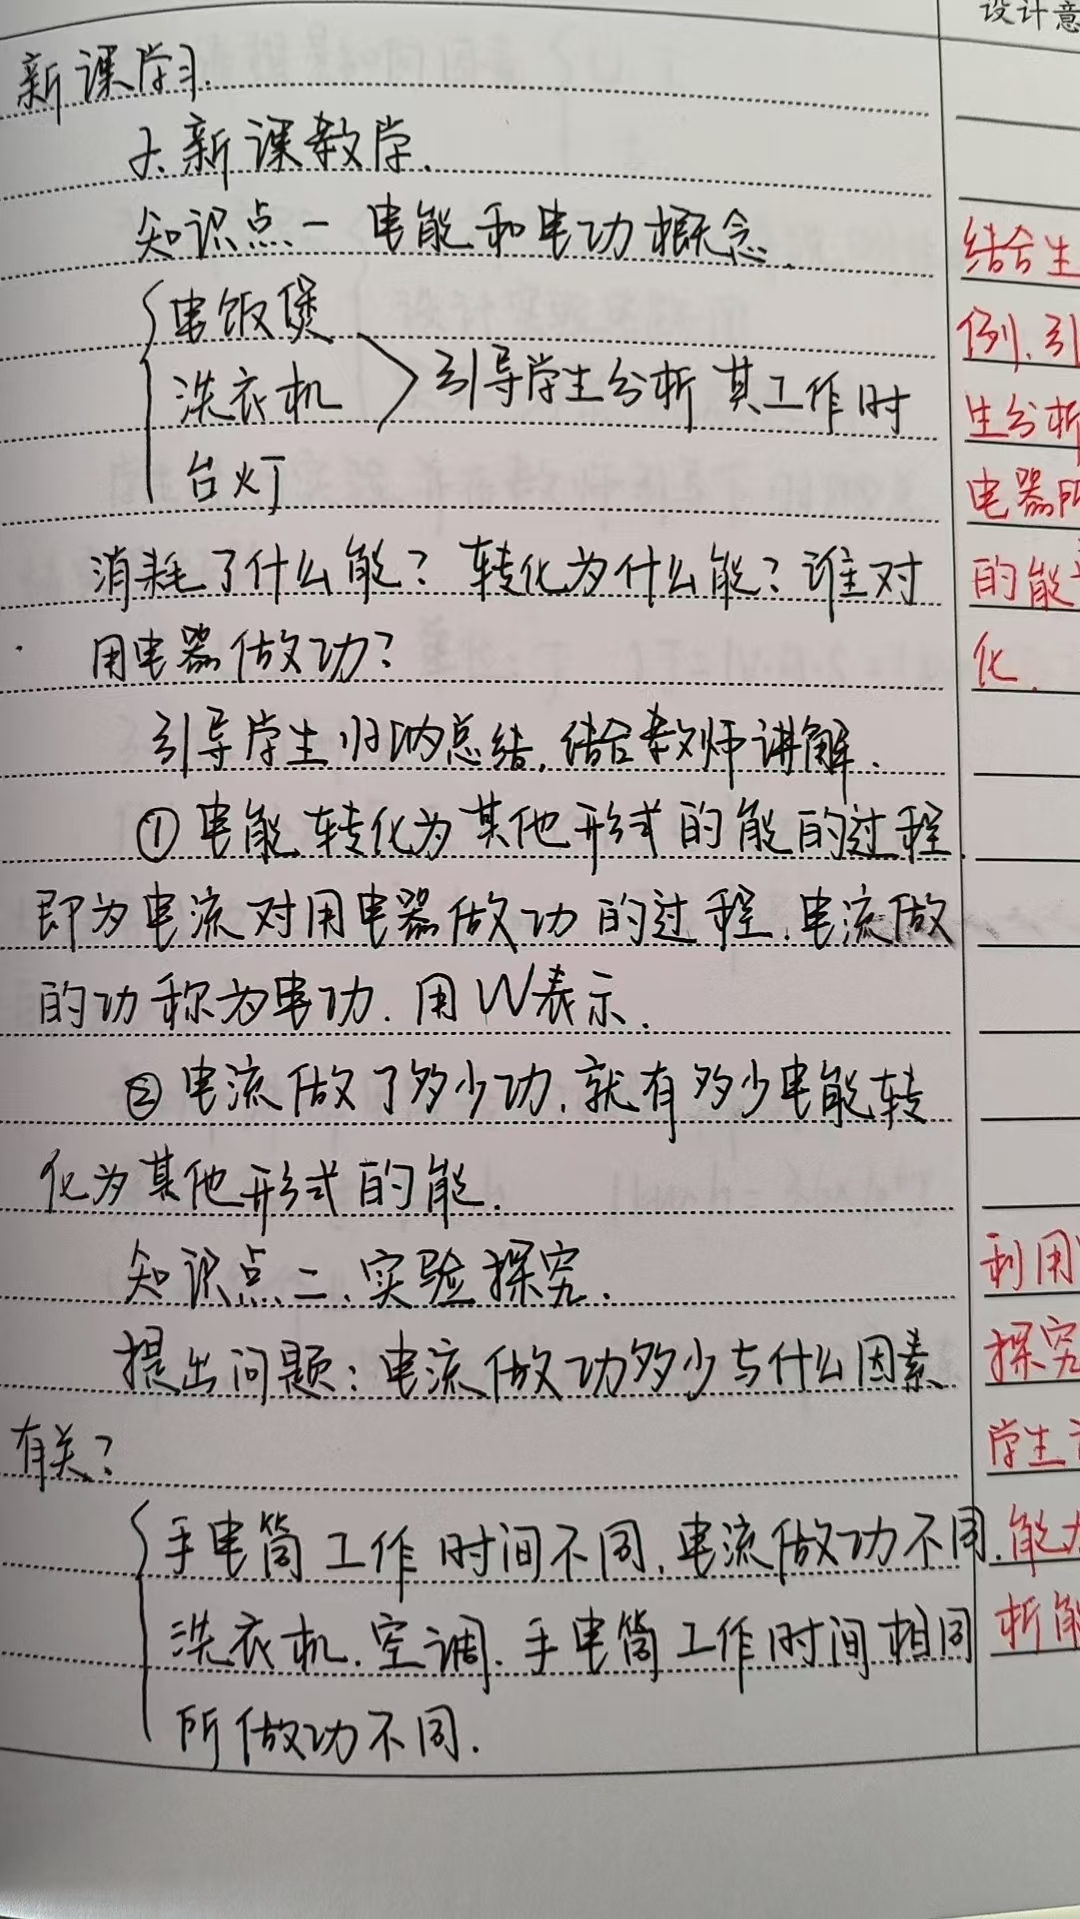 设计意
新课学习.
2.新课教学.
知识点一 电能和电功概念.
电饭煲
洗衣机 引导学生分析其工作时
台灯
消耗了什么能?转化为什么能?谁对
用电器做功?
引导学生归纳总结,结合教师讲解.
①电能转化为其他形式的能的过程,
即为电流对用电器做功的过程,电流做
的功称为电功.用W表示.
②电流做了多少功,就有多少电能转
化为其他形式的能.
知识点二、实验探究.
提出问题:电流做功多少与什么因素
有关?
手电筒工作时间不同,电流做功不同.
洗衣机.空调.手电筒工作时间相同
所做功不同.
结合生
例,引
生分析
电器所
的能
化.
利用
探究
学生
能力
析能